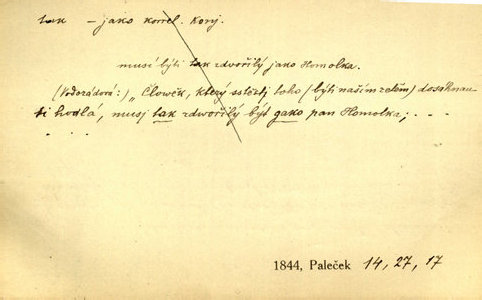 tak – jako korrel. konj.
musí býti tak zdvořilý jako Homolka.
(Vodozádová:) „Člowěk, který sstěstj toho (býti naším zetěm) dosáhnau-
ti hodlá, musj tak zdwořilý být gako pan Homolka; . . .
. . . .
1844, Paleček 14, 27, 17